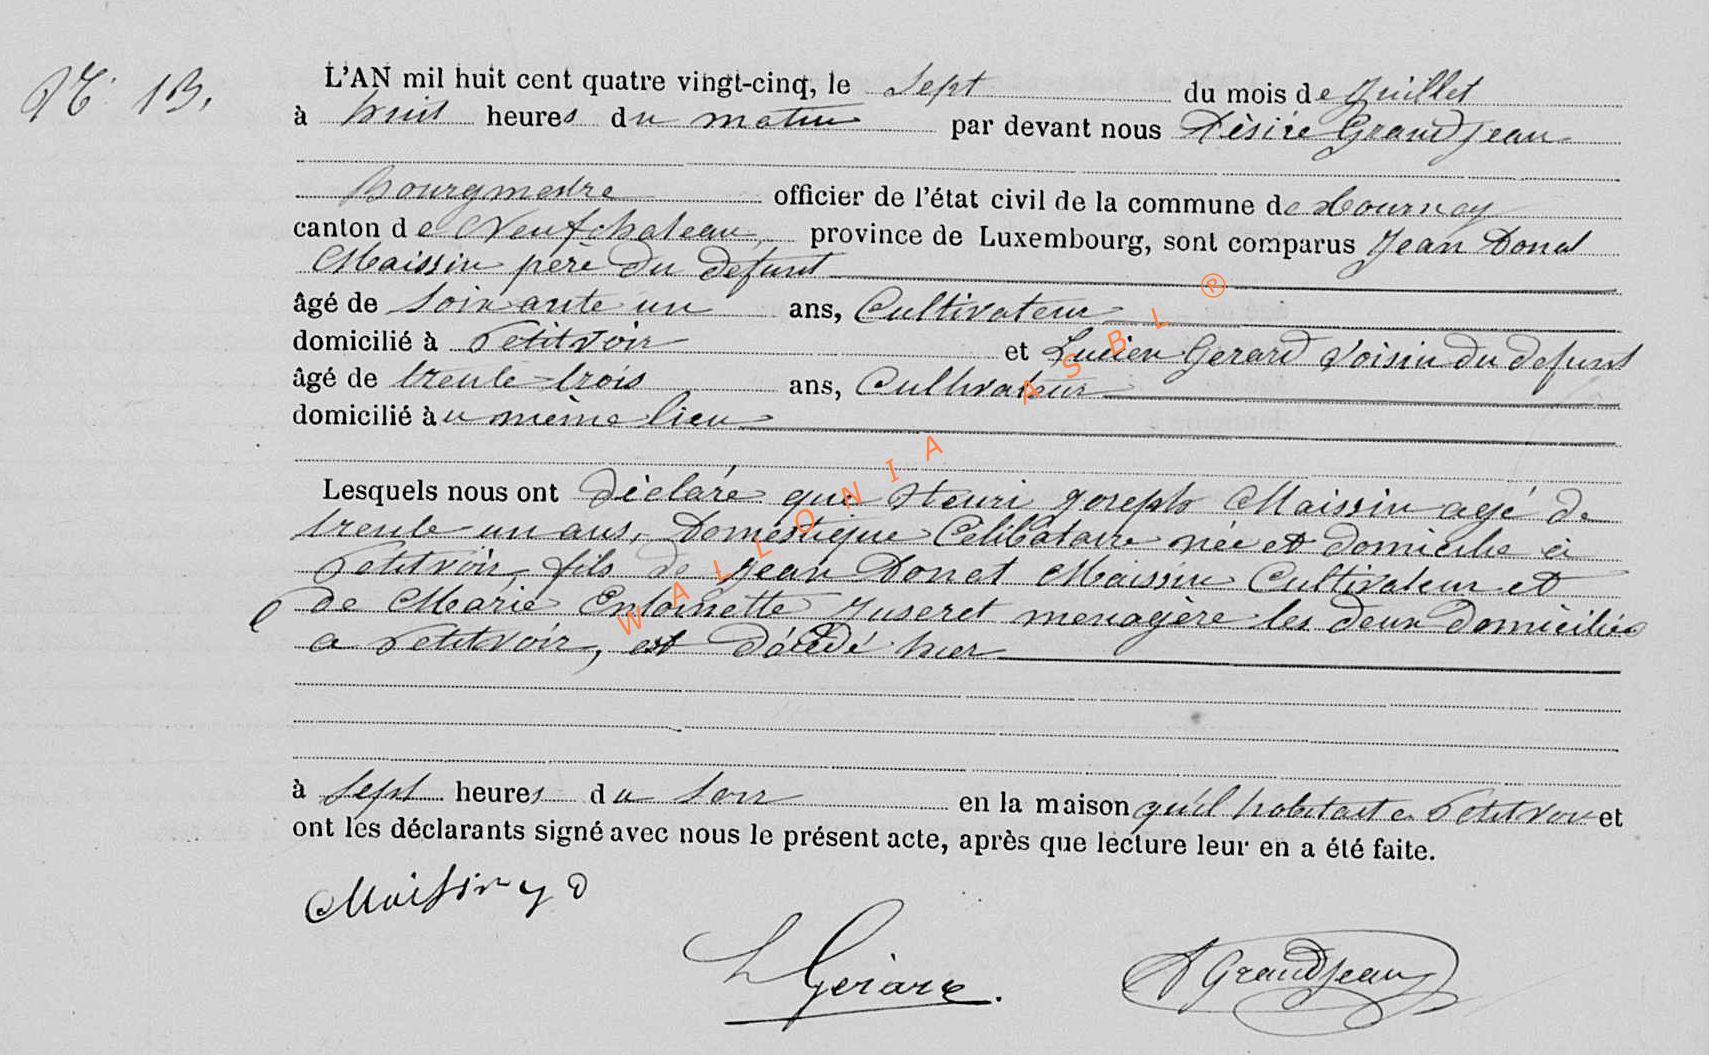 N° 13.
L'AN mil huit cent quatre vingt-cinq, le Sept du mois de Juillet
à huit heures du matin par devant nous Désiré Grandjean
Bourgmestre officier de l'état civil de la commune de Tournay
canton de Neufchateau, province de Luxembourg, sont comparus Jean Donat
Maissin père du defunt
âgé de soixante un ans, Cultivateur
domicilié à Petitvoir et Lucien Gerard Voisin du defunt
âgé de trente-trois ans, Cultivateur
domicilié au même lieu
Lesquels nous ont déclaré que Henri Joseph Maissin agé de
trente un ans, Domestique Célibataire née et domicilie à
Petitvoir, fils de Jean Donat Maissin Cultivateur et
de Marie Entoinette Juseret menagère les deux domiciliés
a Petitvoir, est décédé hier
à Sept heures du soir en la maison qu'il habitait a Petitvoir et
ont les déclarants signé avec nous le présent acte, après que lecture leur en a été faite.
Maissin J D
L Gérard.
D Grandjean
WALLONIA ASBL ®